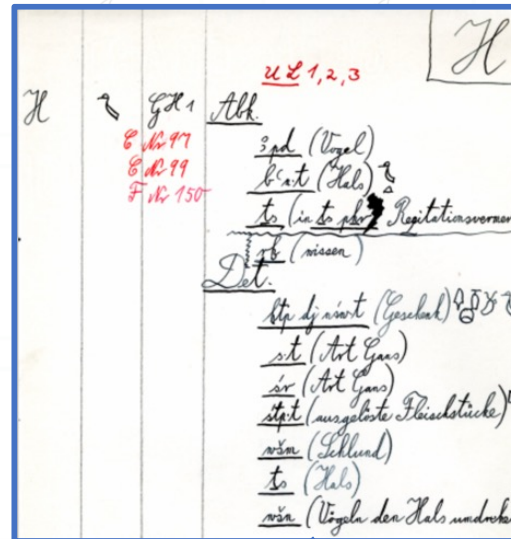 H
UL 1, 2, 3
H GH 1 Abk.
C Nr 97 ꜣpd (Vogel)
C Nr 99 bꜥn·t (Hals)
F Nr 150 ṯs (in ṯs pẖr Rezitationsvermer
rḫ (wissen)
Det.
ḥtp dj nśw·t (Geschenk)
s·t (Art Gans)
śr (Art Gans)
śtp·t (ausgelöste Fleischstücke)
wšm (Schlund)
ṯs (Hals)
wšn (Vögeln den Hals umdrehe